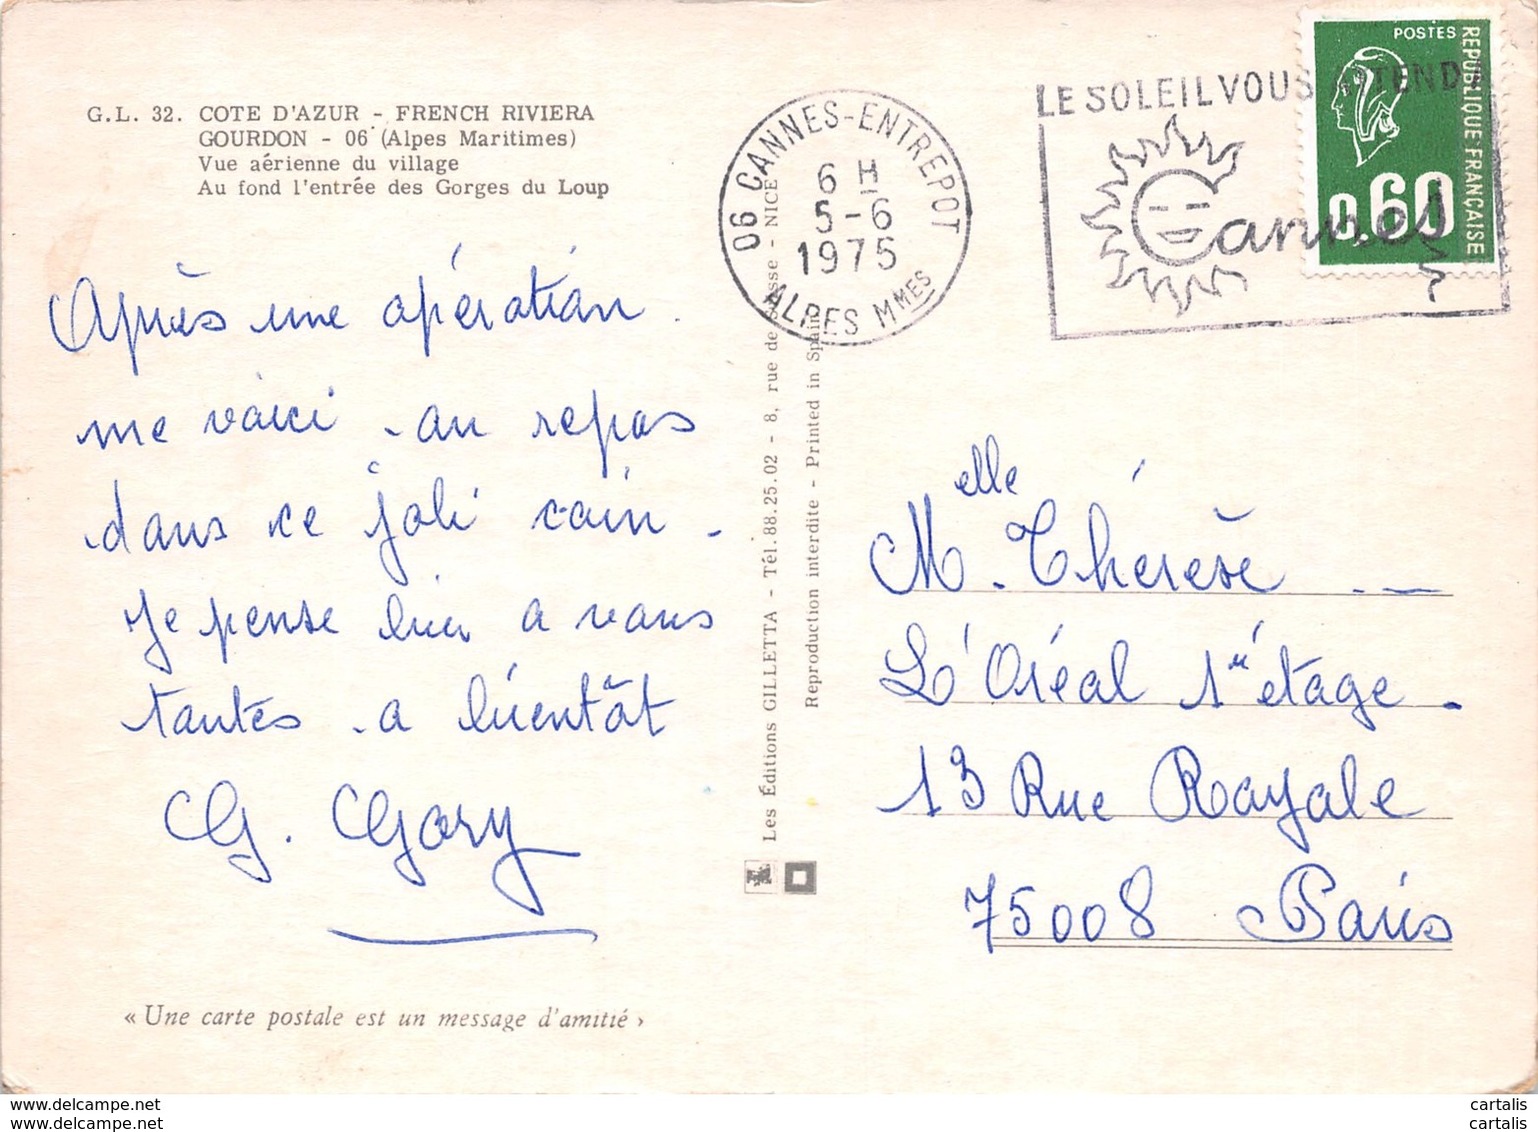 G.L. 32. COTE D'AZUR - FRENCH RIVIERA
GOURDON - 06 (Alpes Maritimes)
Vue aérienne du village
Au fond l'entrée des Gorges du Loup
Après une opération
me voici - au repos
dans ce joli coin -
Je pense bien a vous
toutes - a bientôt
G. Gory
« Une carte postale est un message d'amitié »
06 CANNES-ENTREPOT
6 H
5-6
1975
ALPES MMES
LE SOLEIL VOUS ATTEND
Cannes
POSTES
REPUBLIQUE FRANÇAISE
0,60
Les Éditions GILLETTA - Tél. 88.25.02 - 8, rue de - NICE
Reproduction interdite - Printed in Spain
Melle Thérèse
L'Oréal 1er étage -
13 Rue Royale
75008 Paris
www.delcampe.net
www.delcampe.net
cartalis
cartalis